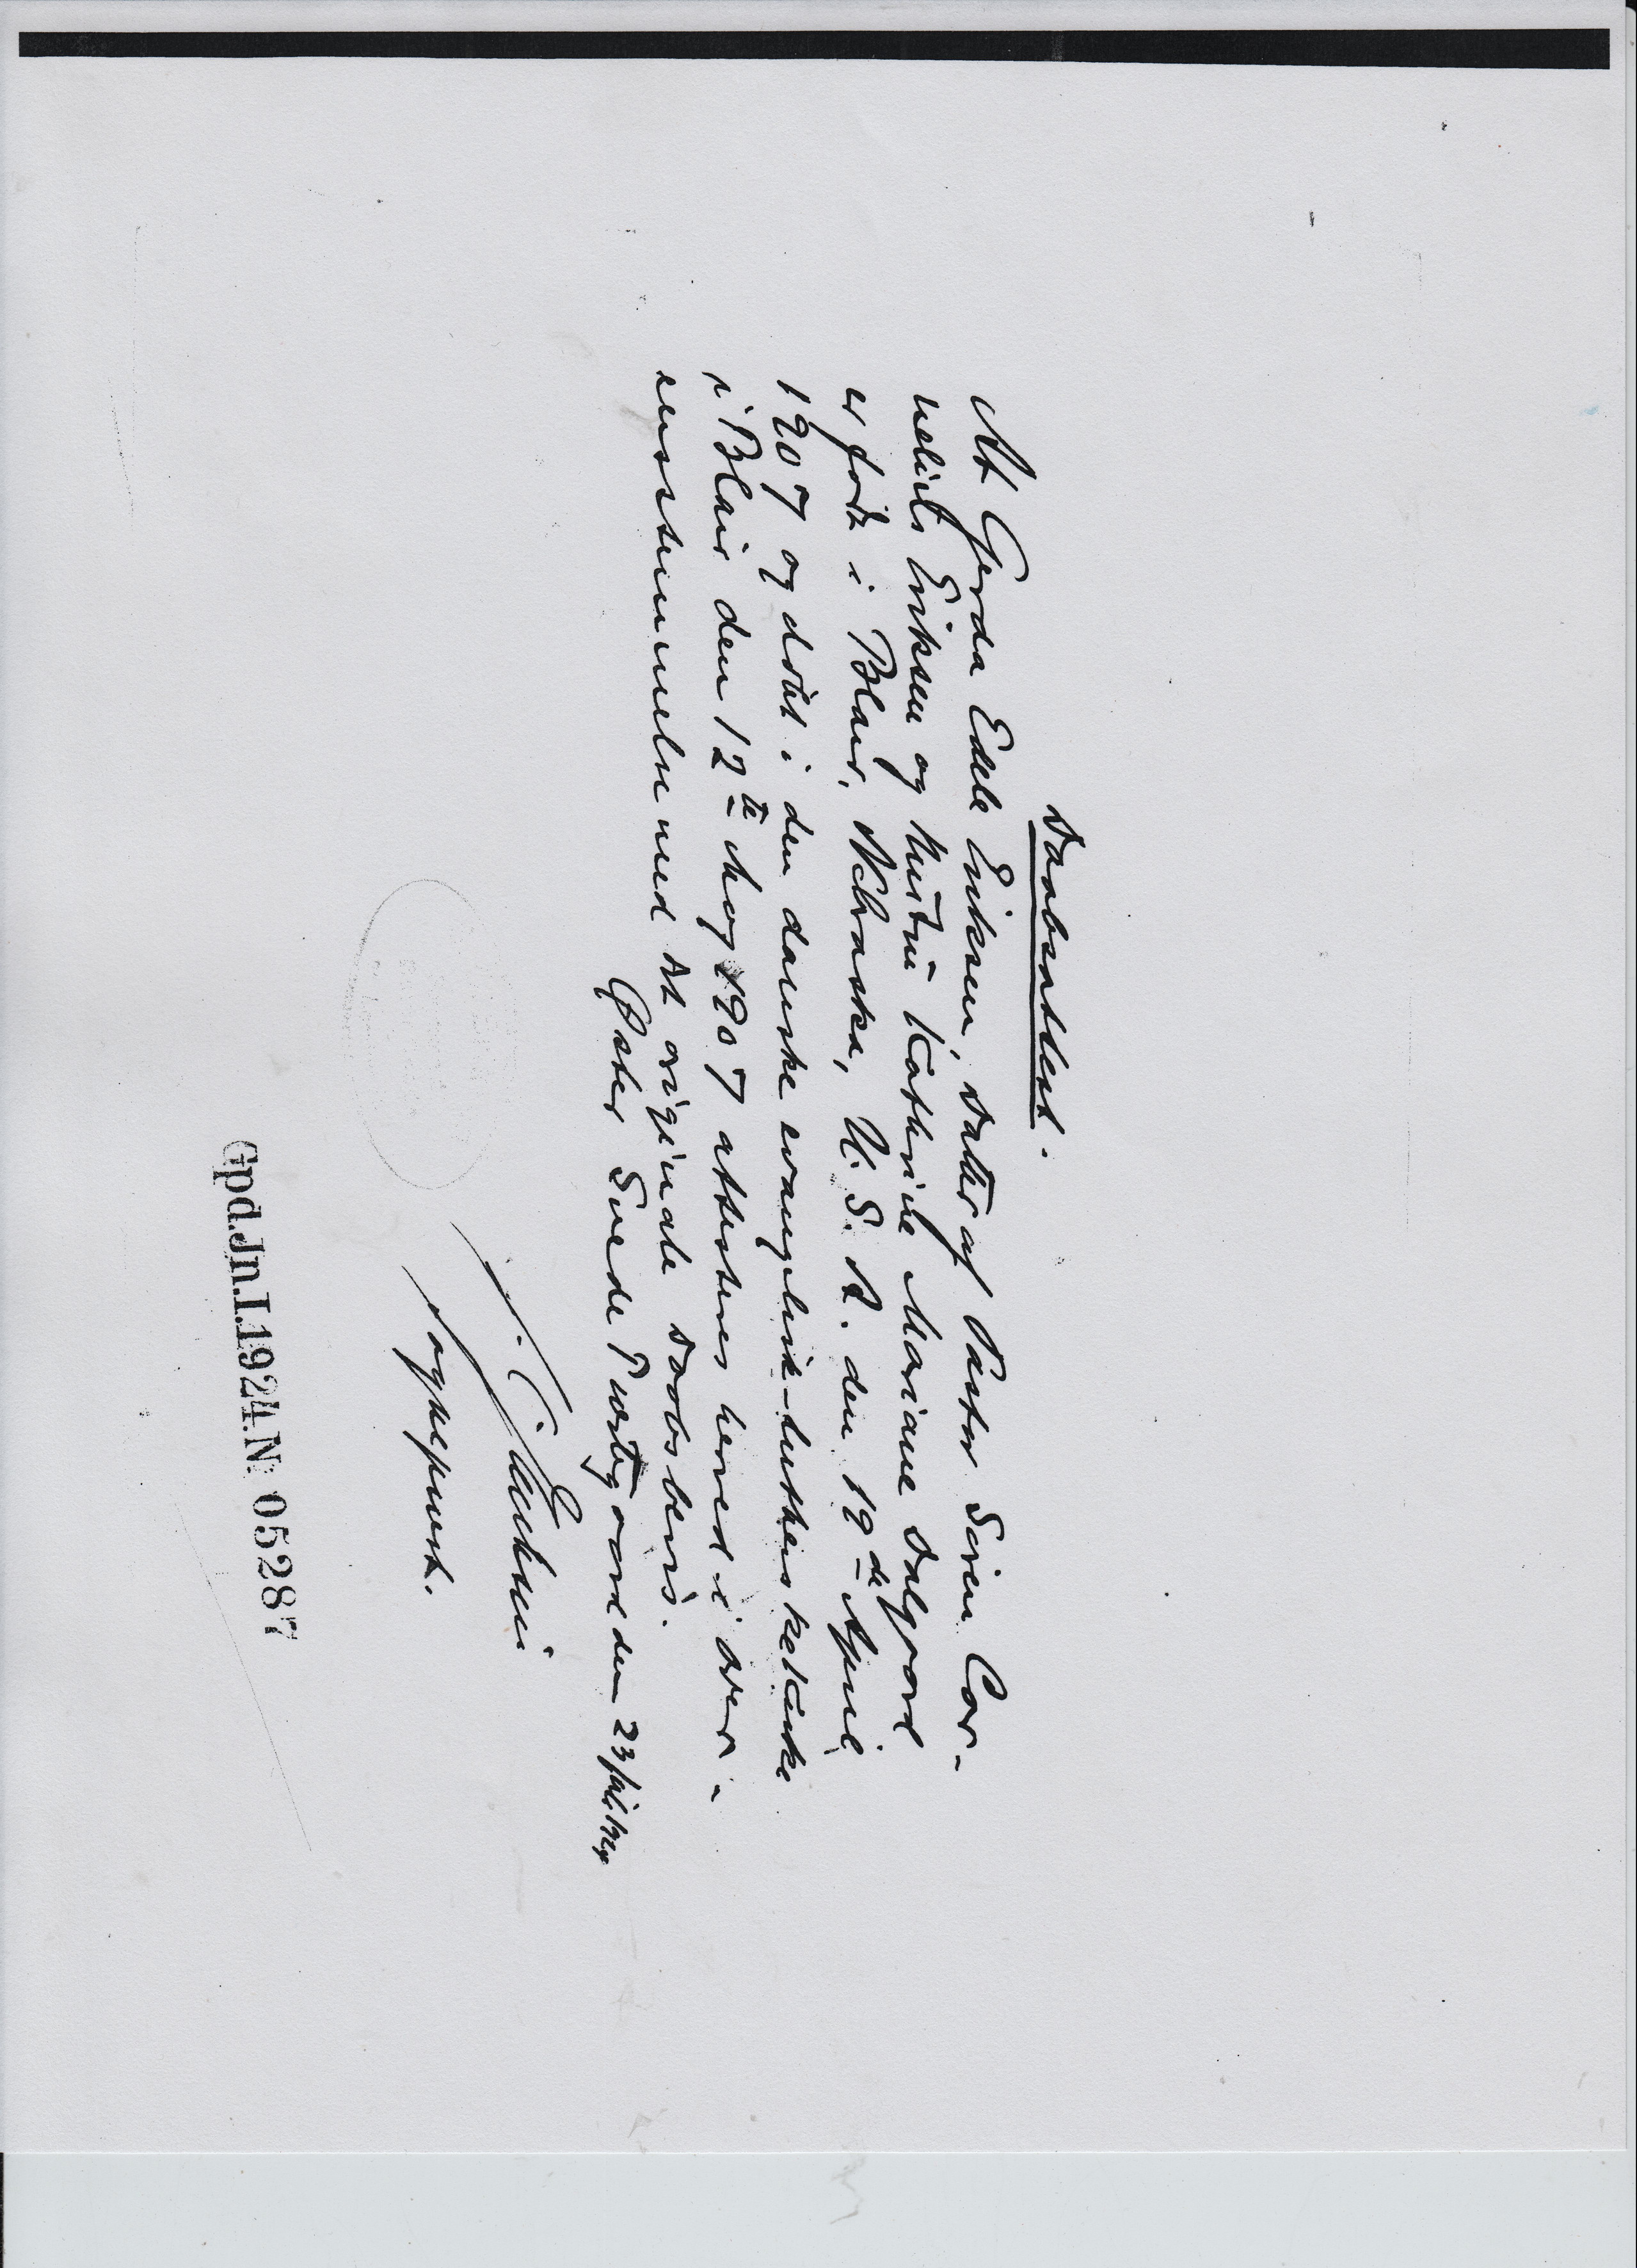 Daabsattest.
At Gerda Edele Eriksen, Datter af Pastor Sören Cor-
nelius Eriksen og Hustru Kathrine Mariane Dalgaard
er født i Blair, Nebraska, U. S. A. den 19de April
1907 og døbt i den danske evangelisk-lutherske Kirke
i Blair den 12te Maj 1907 attesteres herved i over-
ensstemmelse med det originale Daabsbevis.
Øster Snede Præstegaard den 23 Juli 1924
Sognepræst.
Gpd.Jn.I.1924.N: 05287